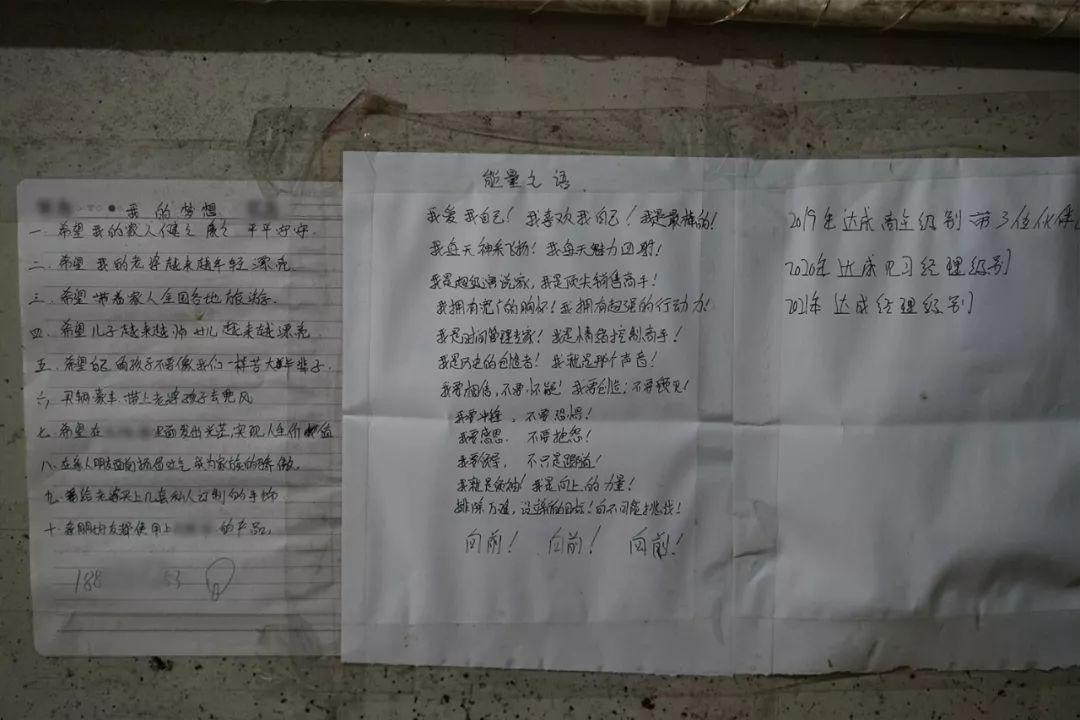 我的梦想
一、希望我的家人健健康康平平安安.
二、希望我的老婆越来越年轻漂亮.
三、希望带着家人全国各地旅游.
四、希望儿子越来越帅女儿越来越漂亮
五、希望自己的孩子不要像我们一样苦大半辈子.
六、买辆豪车.带上老婆孩子去兜风
七、希望在 里面发出光芒,实现人生价值
八、在家人朋友面前扬眉吐气成为家族的骄傲.
九、要给老婆买上几套私人订制的手饰
十、亲朋好友都使用上 的产品.
188 53
能量之语
我爱我自己！我喜欢我自己！我是最棒的！
我每天神采飞扬！我每天魅力四射！
我是超级演说家,我是顶尖销售高手！
我拥有宽广的胸怀！我拥有超强的行动力！
我是时间管理专家！我是情绪控制高手！
我是历史的创造者！我就是那个声音！
我要相信,不要怀疑！我要创造,不要预见！
我要冲锋,不要恐惧！
我要感恩.不要抱怨！
我要领导,不只是跟随！
我就是奇迹！我是向上的力量！
排除万难,没有 向不可能挑战！
向前！向前！向前！
2019年达成 级别带3位伙伴
2020年达成见习经理级别
2021年达成经理级别